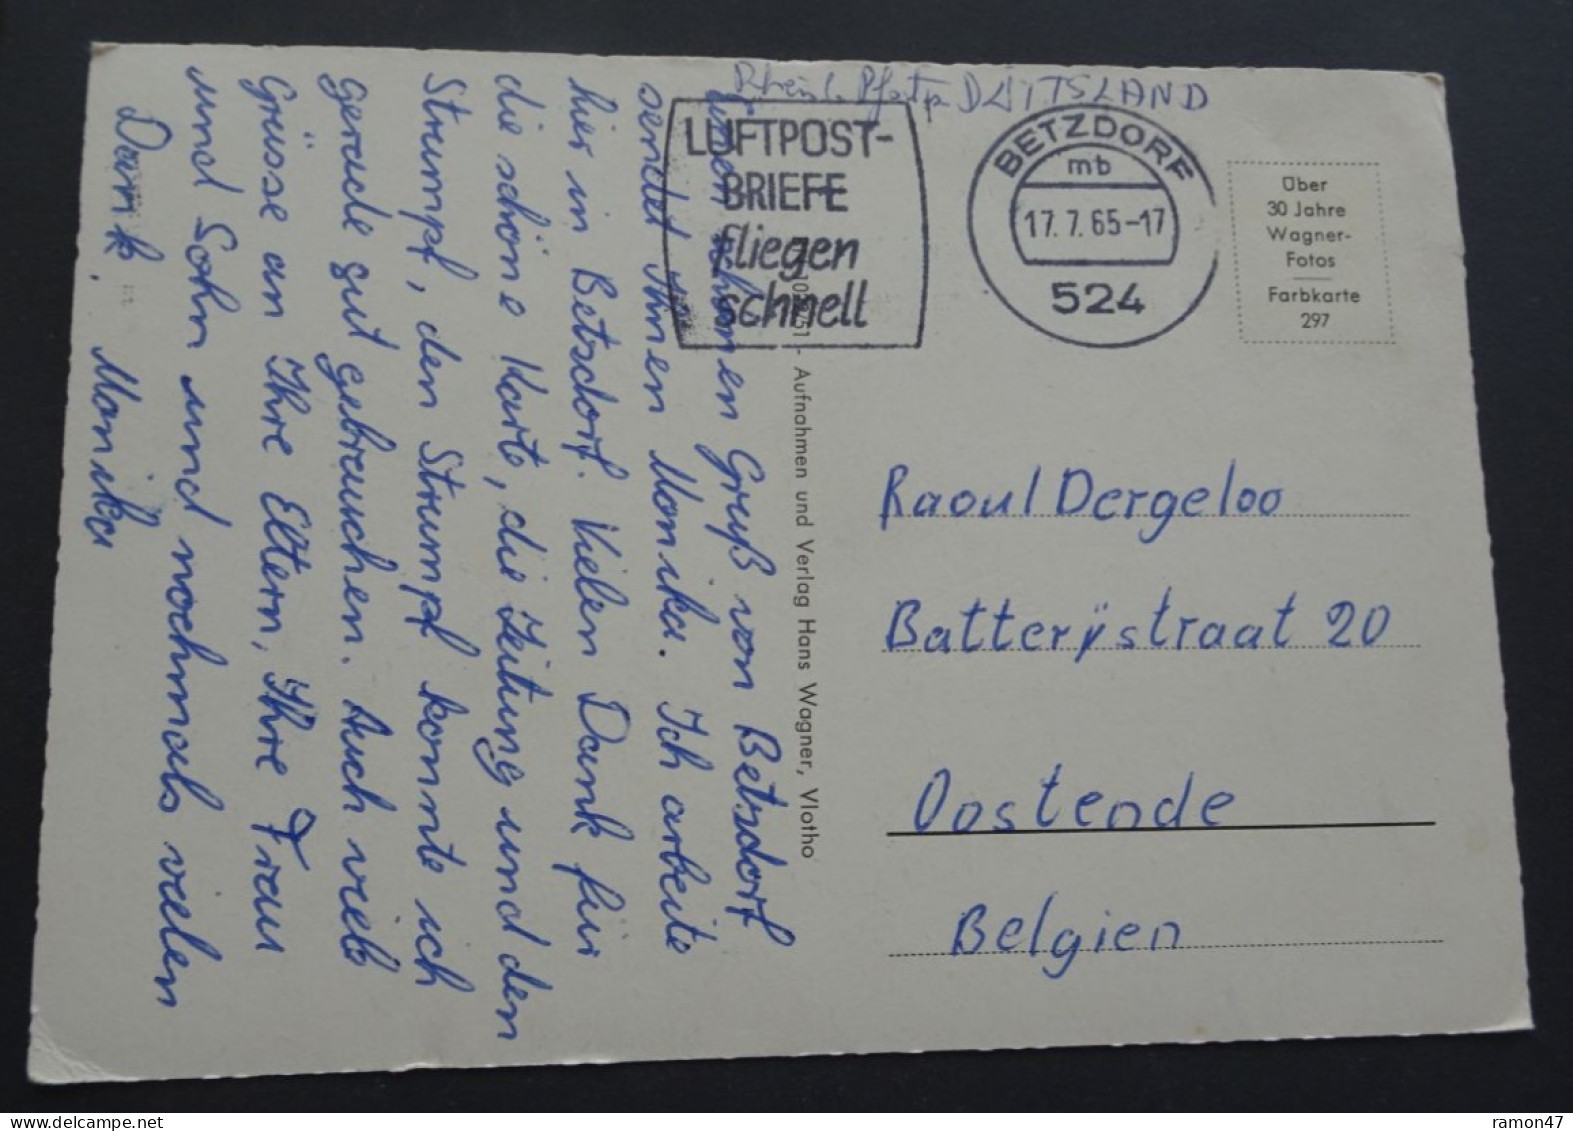 Rheinl. Pfalz DUITSLAND
LUFTPOST-
BRIEFE
fliegen
schnell
BETZDORF
mb
17. 7. 65-17
524
Über
30 Jahre
Wagner-
Fotos
Farbkarte
297
Einen schönen Gruß von Betzdorf
sendet Ihnen Monika. Ich arbeite
hier in Betzdorf. Vielen Dank für
die schöne Karte, die Zeitung und den
Strumpf, den Strumpf konnte ich
gerade gut gebrauchen. Auch viele
Grüsse an Ihre Eltern, Ihre Frau
und Sohn und nochmals vielen
Dank, Monika
- Aufnahmen und Verlag Hans Wagner, Vlotho
Raoul Dergeloo
Batterijstraat 20
Oostende
Belgien
www.delcampe.net
ramon47